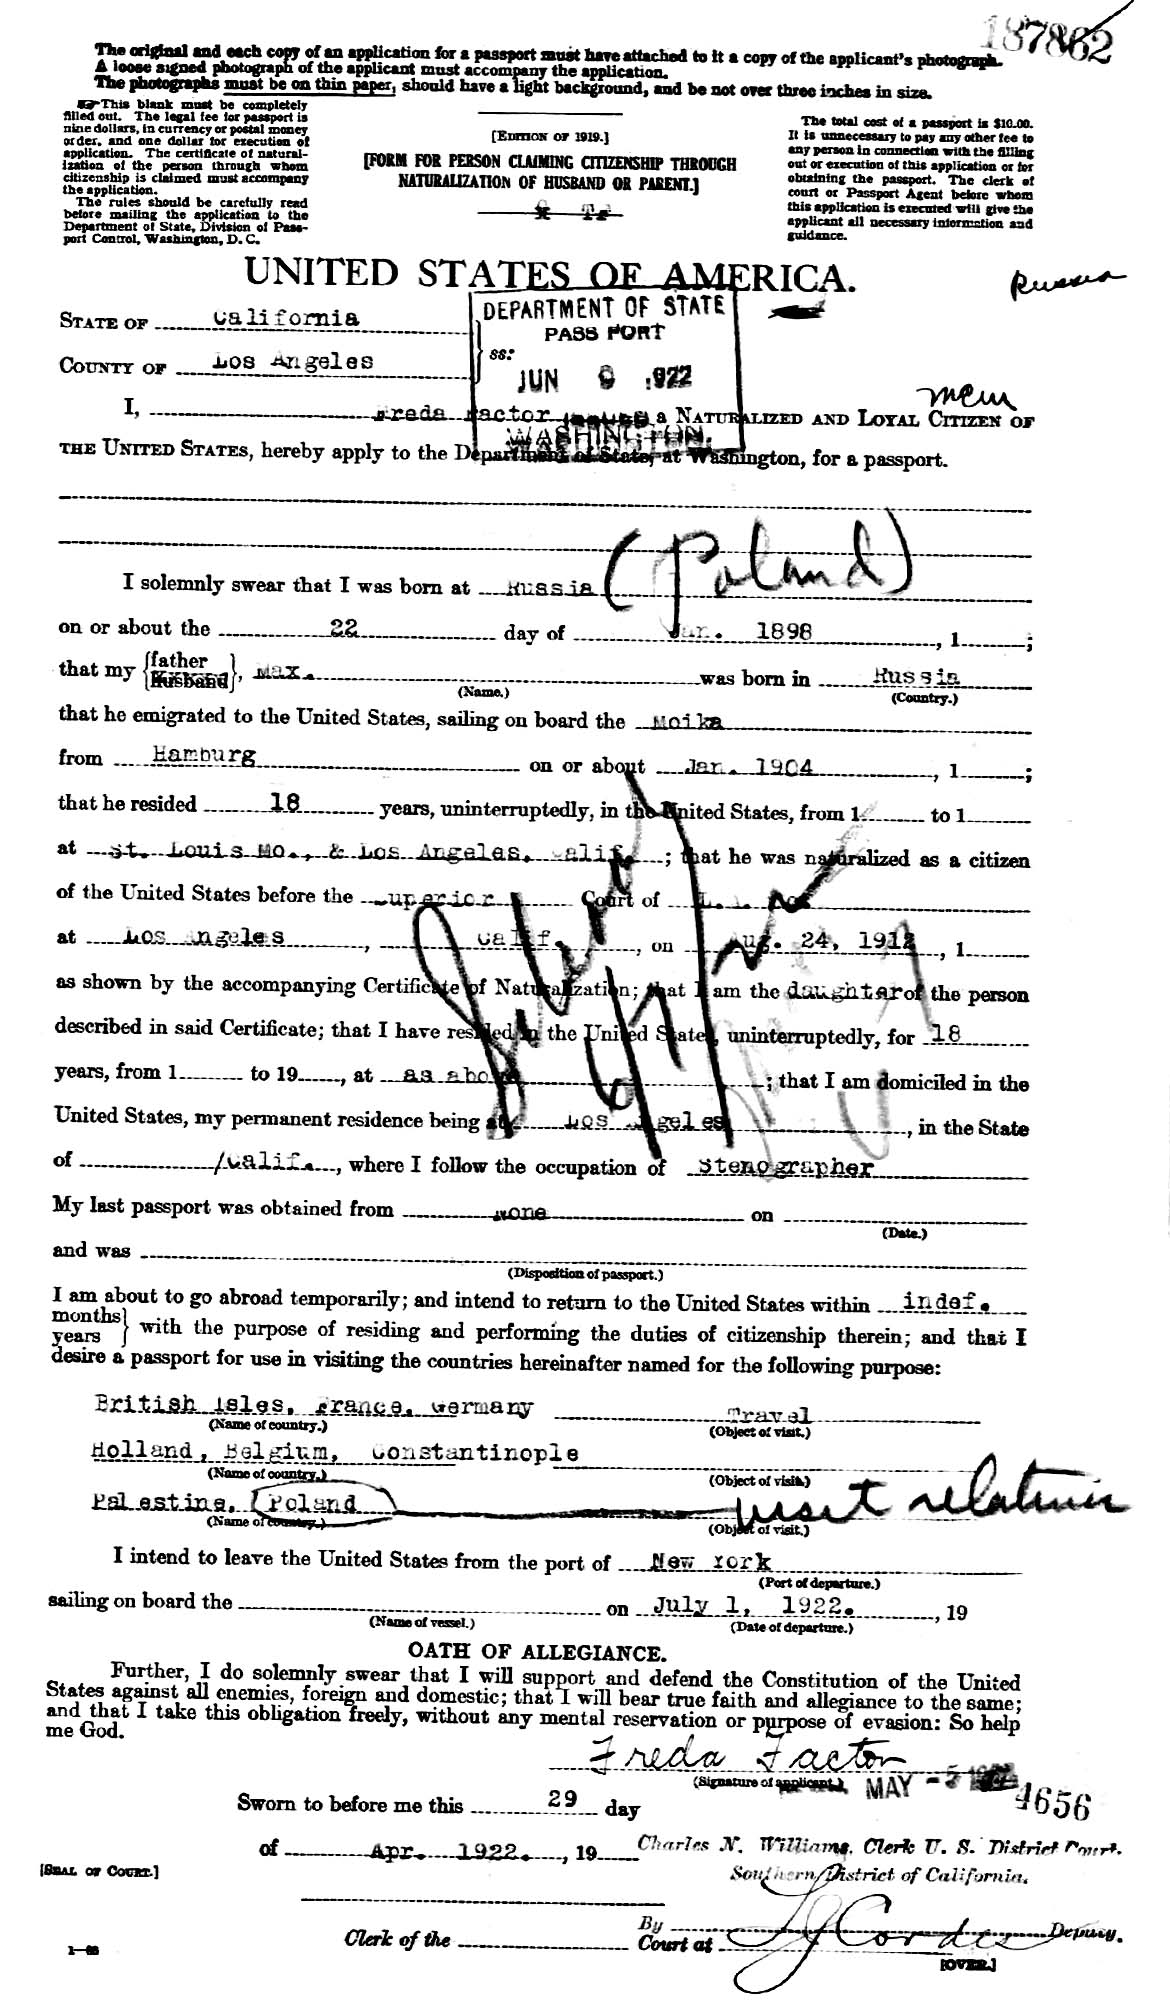 187862
The original and each copy of an application for a passport must have attached to it a copy of the applicant's photograph.
A loose signed photograph of the applicant must accompany the application.
The photographs must be on thin paper, should have a light background, and be not over three inches in size.
This blank must be completely
filled out. The legal fee for passport is
nine dollars, in currency or postal money
order, and one dollar for execution of
application. The certificate of natural-
ization of the person through whom
citizenship is claimed must accompany
the application.
The rules should be carefully read
before mailing the application to the
Department of State, Division of Pass-
port Control, Washington, D. C.
[EDITION OF 1919.]
[FORM FOR PERSON CLAIMING CITIZENSHIP THROUGH
NATURALIZATION OF HUSBAND OR PARENT.]
The total cost of a passport is $10.00.
It is unnecessary to pay any other fee to
any person in connection with the filling
out or execution of this application or for
obtaining the passport. The clerk of
court or Passport Agent before whom
this application is executed will give the
applicant all necessary information and
guidance.
UNITED STATES OF AMERICA.
Russia
STATE OF California
COUNTY OF Los Angeles
ss:
DEPARTMENT OF STATE
PASSPORT
JUN 9 1922
WASHINGTON.
mem
I, Freda Factor, a NATURALIZED AND LOYAL CITIZEN OF
THE UNITED STATES, hereby apply to the Department of State, at Washington, for a passport.
I solemnly swear that I was born at Russia (Poland)
on or about the 22 day of Jan. 1898, 1;
that my {father Husband}, Max. was born in Russia
(Name.) (Country.)
that he emigrated to the United States, sailing on board the Moika
from Hamburg on or about Jan. 1904, 1;
that he resided 18 years, uninterruptedly, in the United States, from 1 to 1
at St. Louis Mo., & Los Angeles, Calif.; that he was naturalized as a citizen
of the United States before the Superior Court of
at Los Angeles, Calif., on Aug. 24, 1912, 1
as shown by the accompanying Certificate of Naturalization; that I am the daughter of the person
described in said Certificate; that I have resided in the United States, uninterruptedly, for 18
years, from 1 to 19, at as above; that I am domiciled in the
United States, my permanent residence being at Los Angeles, in the State
of /Calif., where I follow the occupation of Stenographer
My last passport was obtained from None on
(Date.)
and was
(Disposition of passport.)
I am about to go abroad temporarily; and intend to return to the United States within indef.
months} years with the purpose of residing and performing the duties of citizenship therein; and that I
desire a passport for use in visiting the countries hereinafter named for the following purpose:
British Isles, France, Germany Travel
(Name of country.) (Object of visit.)
Holland, Belgium, Constantinople
(Name of country.) (Object of visit.)
Palestine, (Poland) visit relatives
(Name of country.) (Object of visit.)
I intend to leave the United States from the port of New York
(Port of departure.)
sailing on board the on July 1, 1922., 19
(Name of vessel.) (Date of departure.)
OATH OF ALLEGIANCE.
Further, I do solemnly swear that I will support and defend the Constitution of the United
States against all enemies, foreign and domestic; that I will bear true faith and allegiance to the same;
and that I take this obligation freely, without any mental reservation or purpose of evasion: So help
me God.
Freda Factor
(Signature of applicant.) MAY - 5 4656
Sworn to before me this 29 day
of Apr. 1922., 19
Charles N. Williams, Clerk U. S. District Court,
Southern District of California.
[SEAL OF COURT.]
By Deputy.
Clerk of the Court at
1—68
[OVER.]